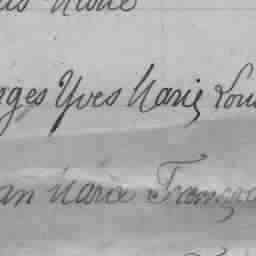 Marie
ges Yves Marie Lou
an Marie François